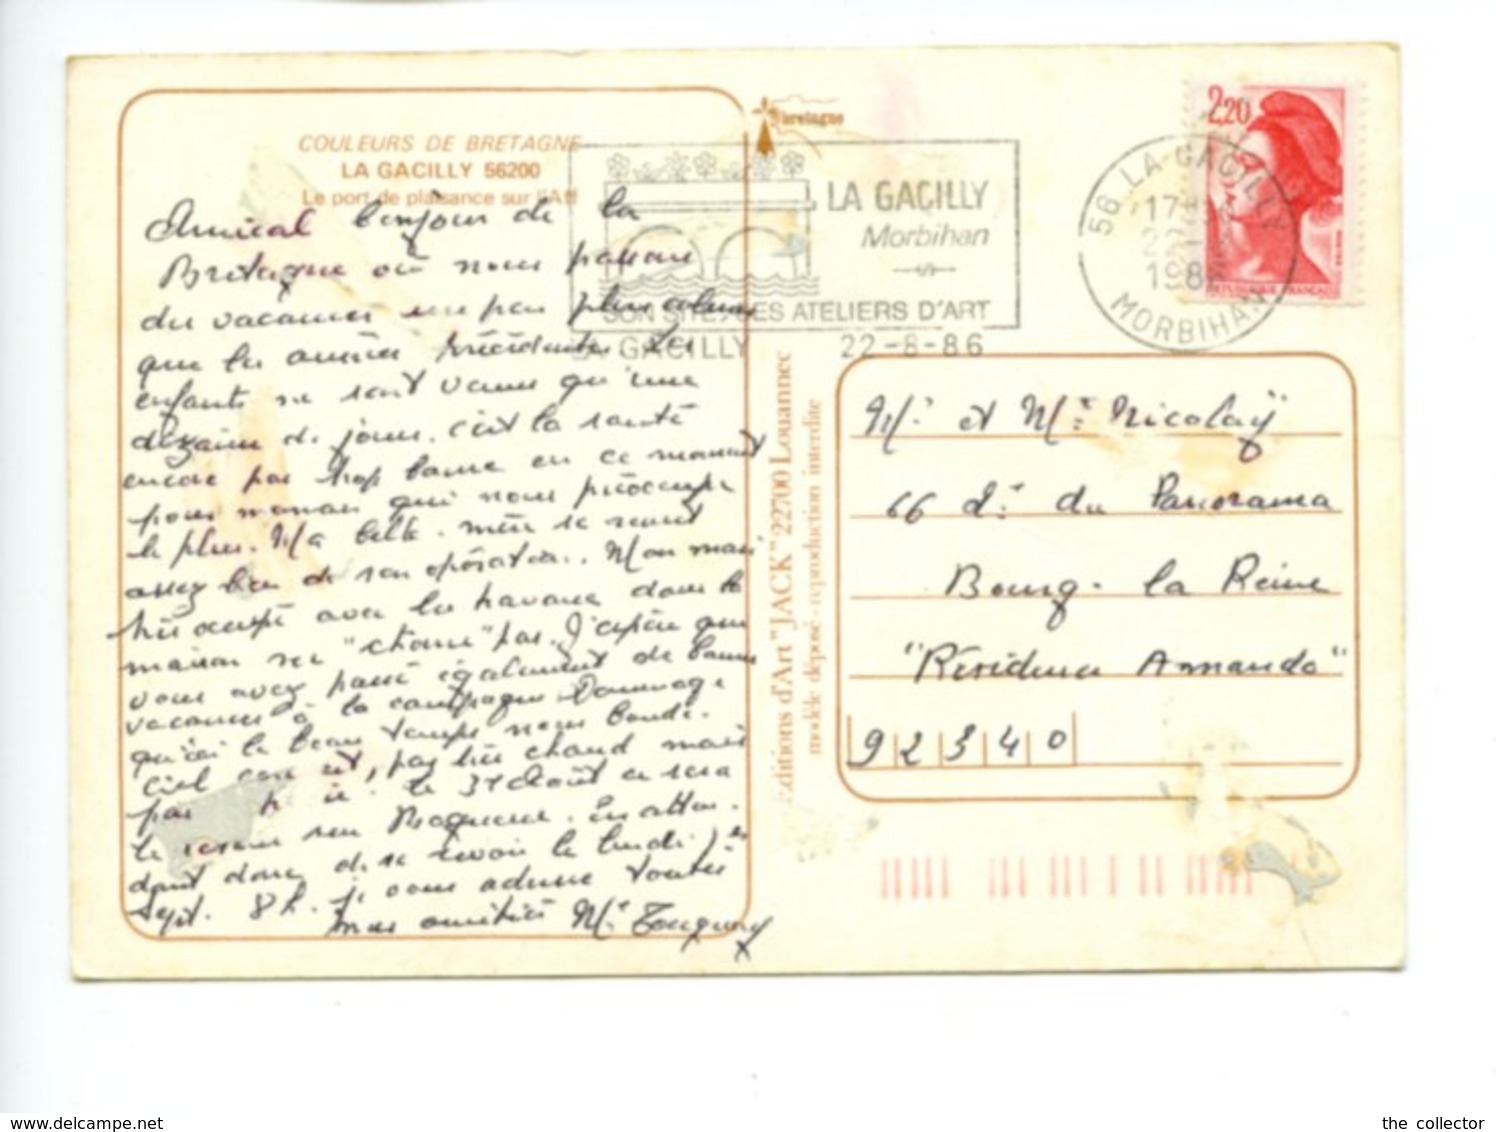 COULEURS DE BRETAGNE
LA GACILLY 56200
Le port de plaisance sur l'Aff
Amical bonjour de la
Bretagne où nous passons
des vacances un peu plus calmes
que les années précédentes. Les
enfants ne sont venus qu'une
dizaine de jours. C'est la santé
encore pas trop bonne en ce moment
pour maman qui nous préoccupe
le plus. Ma belle-mère se remet
assez bien de son opération. Mon mari
très occupé avec les travaux dans la
maison ne "chôme" pas. J'espère que
vous avez passé également de bonnes
vacances à la campagne Dommage
qu'ici le beau temps nous boude.
Ciel couvert, pas très chaud mais
pas Le 31 août ce sera
le retour sur Bagneux. En atten-
dant donc de se revoir le lundi 1er
Sept. 8h. je vous adresse toutes
mes amitiés Me
bretagne
LA GACILLY
Morbihan
SON SITE, SES ATELIERS D'ART
GACILLY 22-8-86
2,20
REPUBLIQUE FRANCAISE
56 LA GACILLY
17H
22-8
1986
MORBIHAN
Editions d'Art "JACK" 22700 Louannec
modèle déposé - reproduction interdite
Mr et Me Nicolaÿ
66 Bd du Panorama
Bourg-la Reine
"Résidence Amanda"
92340
www.delcampe.net
the collector